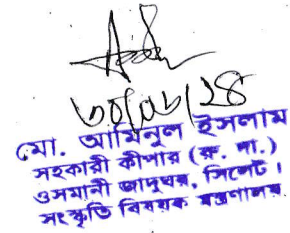 ৩০/০৬/২৪
মো. আমিনুল ইসলাম
সহকারী কীপার (রু. দা.)
ওসমানী জাদুঘর, সিলেট।
সংস্কৃতি বিষয়ক মন্ত্রণালয়